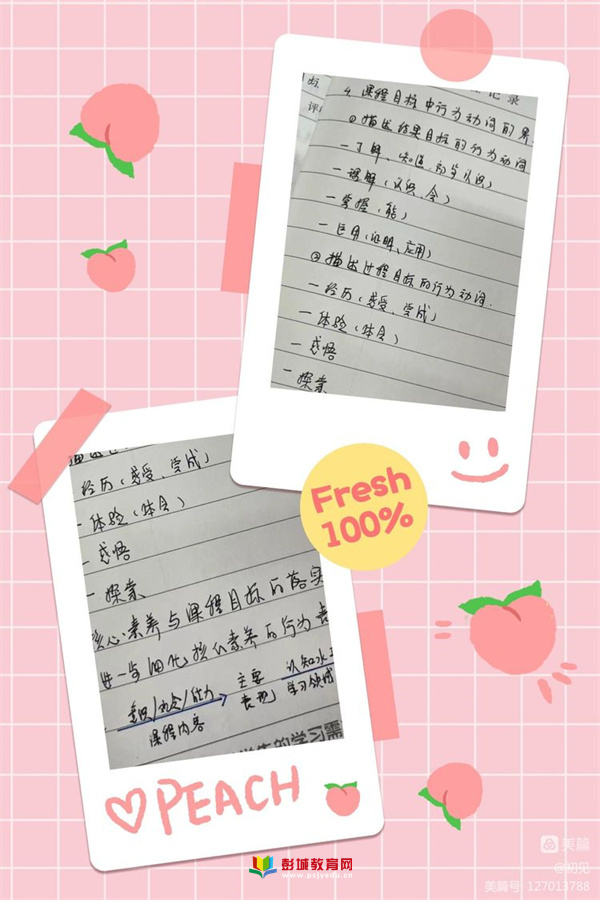 记录
4. 课程目标中行为动词的界
① 描述结果目标的行为动词
一 了解(知道、初步认识)
一 理解(认识、会)
一 掌握(能)
一 运用(证明、应用)
② 描述过程目标的行为动词.
一 经历(感受、尝试)
一 体验(体会)
一 感悟
一 探索
经历(感受、尝试)
一 体验(体会)
一 感悟
一 探索
核心素养与课程目标的落实
进一步细化核心素养的行为表
意识/观念/能力 → 主要表现
认知水
学习领域
课程内容
的学习需
Fresh
100%
PEACH
彭城教育网
www.psjyedu.cn
美篇
@初见
美篇号 127013788